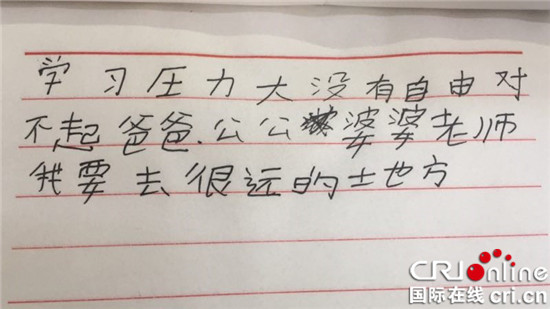 学习压力大没有自由对
不起爸爸.公公婆婆老师
我要去很远的地方
CRI Online
国际在线 cri.cn